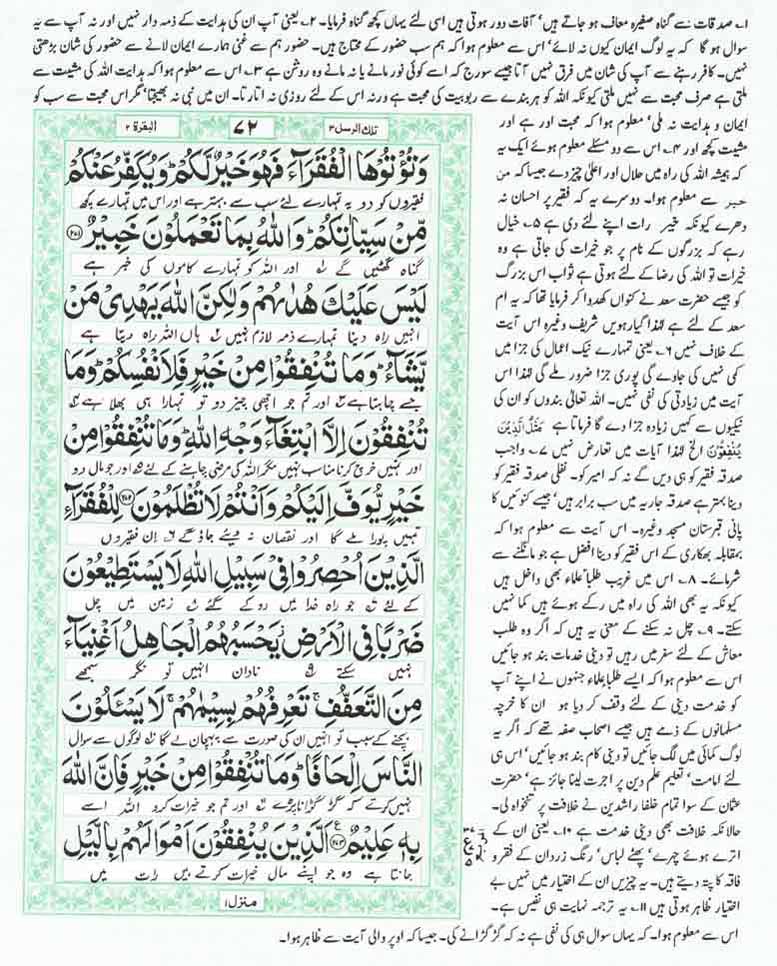 ۱۔ صدقات سے گناہ صغیرہ معاف ہو جاتے ہیں‘ آفات دور ہوتی ہیں اسی لئے یہاں کچھ گناہ فرمایا۔ ۲۔ یعنی آپ ان کی ہدایت کے ذمہ دار نہیں اور نہ آپ سے یہ
سوال ہو گا کہ یہ لوگ ایمان کیوں نہ لائے‘ اس سے معلوم ہوا کہ ہم سب حضور کے محتاج ہیں۔ حضور ہم سے غنی ہمارے ایمان لانے سے حضور کی شان بڑھتی
نہیں۔ کافر رہنے سے آپ کی شان میں فرق نہیں آتا جیسے سورج کہ اسے کوئی نور مانے یا نہ مانے وہ روشن ہے ۳۔ اس سے معلوم ہوا کہ ہدایت اللہ کی مشیت سے
ملتی ہے صرف محبت سے نہیں ملتی کیونکہ اللہ کو ہر بندے سے ربوبیت کی محبت ہے ورنہ اس کے لئے روزی نہ اتارتا۔ ان میں نبی نہ بھیجتا‘ مگر اس محبت سے سب کو
ایمان و ہدایت نہ ملی‘ معلوم ہوا کہ محبت اور ہے اور
مشیت کچھ اور ۴۔ اس سے دو مسئلے معلوم ہوئے ایک یہ
کہ ہمیشہ اللہ کی راہ میں حلال اور اعلیٰ چیز دے جیسا کہ من
خیر سے معلوم ہوا۔ دوسرے یہ کہ فقیر پر احسان نہ
دھرے کیونکہ خیر رات اپنے لئے دی ہے ۵۔ خیال
رہے کہ بزرگوں کے نام پر جو خیرات کی جاتی ہے وہ
خیرات تو اللہ کی رضا کے لئے ہوتی ہے ثواب اس بزرگ
کو جیسے حضرت سعد نے کنواں کھدوا کر فرمایا تھا کہ یہ ام
سعد کے لئے ہے لہٰذا گیارہویں شریف وغیرہ اس آیت
کے خلاف نہیں ۶۔ یعنی تمہارے نیک اعمال کی جزا میں
کمی نہیں کی جاوے گی پوری جزا ضرور ملے گی لہٰذا اس
آیت میں زیادتی کی نفی نہیں۔ اللہ تعالیٰ بندوں کو ان کی
نیکیوں سے کہیں زیادہ جزا دے گا فرماتا ہے مَثَلُ الَّذِیْنَ
یُنْفِقُوْنَ الخ لہٰذا آیات میں تعارض نہیں ۷۔ واجب
صدقہ فقیر کو ہی دیں گے نہ کہ امیر کو۔ نفلی صدقہ فقیر کو
دینا بہتر ہے صدقہ جاریہ میں سب برابر ہیں‘ جیسے کنوئیں کا
پانی قبرستان مسجد وغیرہ۔ اس آیت سے معلوم ہوا کہ
بمقابلہ بھکاری کے اس فقیر کو دینا افضل ہے جو مانگنے سے
شرمائے۔ ۸۔ اس میں غریب طلباء علماء بھی داخل ہیں
کیونکہ یہ بھی اللہ کی راہ میں رکے ہوئے ہیں کما نہیں
سکتے۔ ۹۔ چل نہ سکنے کے معنی یہ ہیں کہ اگر وہ طلب
معاش کے لئے سفر میں رہیں تو دینی خدمات بند ہو جائیں
اس سے معلوم ہوا کہ ایسے طلباء علماء جنہوں نے اپنے آپ
کو خدمت دینی کے لئے وقف کر دیا ہو ان کا خرچہ
مسلمانوں کے ذمے ہیں جیسے اصحاب صفہ تھے کہ اگر یہ
لوگ کمائی میں لگ جائیں تو دینی کام بند ہو جائیں‘ اس ہی
لئے امامت‘ تعلیم علم دین پر اجرت لینا جائز ہے‘ حضرت
عثمان کے سوا تمام خلفا راشدین نے خلافت پر تنخواہ لی۔
حالانکہ خلافت بھی دینی خدمت ہے ۱۰۔ یعنی ان کے
اترے ہوئے چہرے‘ پھٹے لباس‘ رنگ زردان کے فقر و
فاقہ کا پتہ دیتے ہیں۔ یہ چیزیں ان کے اختیار میں نہیں بے
اختیار ظاہر ہوتی ہیں ۱۱۔ یہ ترجمہ نہایت ہی نفیس ہے۔
اس سے معلوم ہوا۔ کہ یہاں سوال ہی کی نفی ہے نہ کہ گڑگڑانے کی۔ جیسا کہ اوپر والی آیت سے ظاہر ہوا۔
تلك الرسل ۳ ۷۲ البقرة ۲
وَتُؤْتُوْهَا الْفُقَرَآءَ فَهُوَ خَیْرٌ لَّكُمْ ؕ وَیُكَفِّرُ عَنْكُمْ
فقیروں کو دو یہ تمہارے لئے سب سے بہتر ہے اور اس میں تمہارے کچھ
مِّنْ سَیِّاٰتِكُمْ ؕ وَاللّٰهُ بِمَا تَعْمَلُوْنَ خَبِیْرٌ ﴿۲۷۱﴾
گناہ گھٹیں گے اور اللہ کو تمہارے کاموں کی خبر ہے
لَیْسَ عَلَیْكَ هُدٰىهُمْ وَلٰكِنَّ اللّٰهَ یَهْدِیْ مَنْ
انہیں راہ دینا تمہارے ذمہ لازم نہیں ہاں اللہ راہ دیتا ہے
یَّشَآءُ ؕ وَمَا تُنْفِقُوْا مِنْ خَیْرٍ فَلِاَنْفُسِكُمْ ؕ وَمَا
جسے چاہتا ہے اور تم جو اچھی چیز دو تو تمہارا ہی بھلا ہے
تُنْفِقُوْنَ اِلَّا ابْتِغَآءَ وَجْهِ اللّٰهِ ؕ وَمَا تُنْفِقُوْا مِنْ
اور تمہیں خرچ کرنا مناسب نہیں مگر اللہ کی مرضی چاہنے کے لئے اور جو مال دو
خَیْرٍ یُّوَفَّ اِلَیْكُمْ وَاَنْتُمْ لَا تُظْلَمُوْنَ ﴿۲۷۲﴾ لِلْفُقَرَآءِ
تمہیں پورا ملے گا اور نقصان نہ دیئے جاؤ گے ان فقیروں
الَّذِیْنَ اُحْصِرُوْا فِیْ سَبِیْلِ اللّٰهِ لَا یَسْتَطِیْعُوْنَ
کے لئے جو راہ خدا میں روکے گئے زمین میں چل
ضَرْبًا فِی الْاَرْضِ ؗ یَحْسَبُهُمُ الْجَاهِلُ اَغْنِیَآءَ
نہیں سکتے نادان انہیں تو نگر سمجھے
مِنَ التَّعَفُّفِ ۚ تَعْرِفُهُمْ بِسِیْمٰهُمْ ۚ لَا یَسْـَٔلُوْنَ
بچنے کے سبب تو انہیں ان کی صورت سے پہچان لے گا لوگوں سے سوال
النَّاسَ اِلْحَافًا ؕ وَمَا تُنْفِقُوْا مِنْ خَیْرٍ فَاِنَّ اللّٰهَ
نہیں کرتے کہ گڑگڑانا پڑے اور تم جو خیرات کرو اللہ اسے
بِهٖ عَلِیْمٌ ﴿۲۷۳﴾ اَلَّذِیْنَ یُنْفِقُوْنَ اَمْوَالَهُمْ بِالَّیْلِ
جانتا ہے وہ جو اپنے مال خیرات کرتے ہیں رات میں
منزل ۱